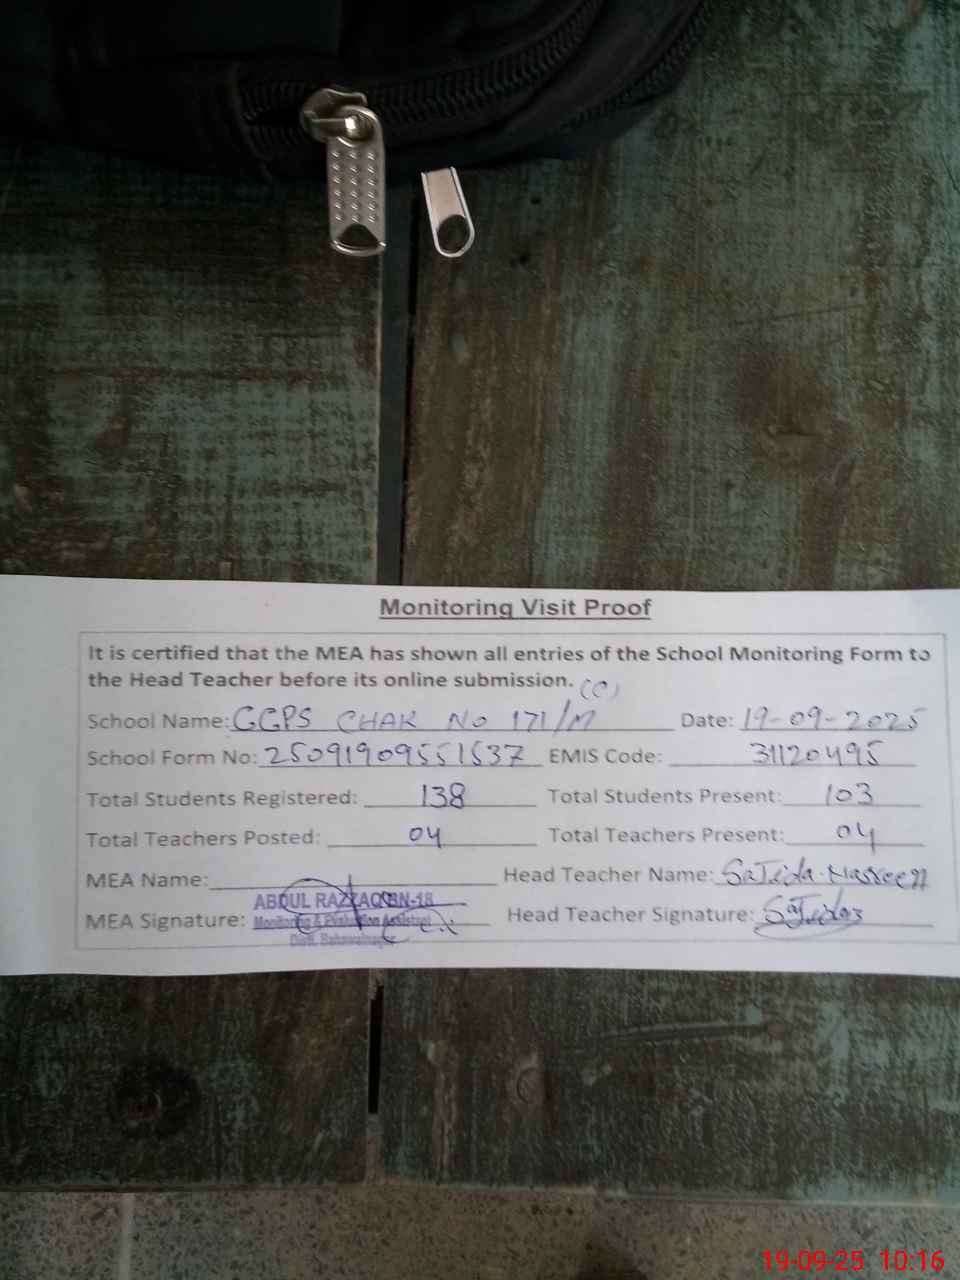 Monitoring Visit Proof
It is certified that the MEA has shown all entries of the School Monitoring Form to
the Head Teacher before its online submission. (C)
School Name: GGPS CHAK No 171/M Date: 19-09-2025
School Form No: 25091909551537 EMIS Code: 31120495
Total Students Registered: 138 Total Students Present: 103
Total Teachers Posted: 04 Total Teachers Present: 04
MEA Name: Head Teacher Name: Sajida Nasreen
ABDUL RAZZAQ BN-18
MEA Signature: Monitoring & Evaluation Assistant Head Teacher Signature: Sajida
Distt. Bahawalnagar
19-09-25 10:16